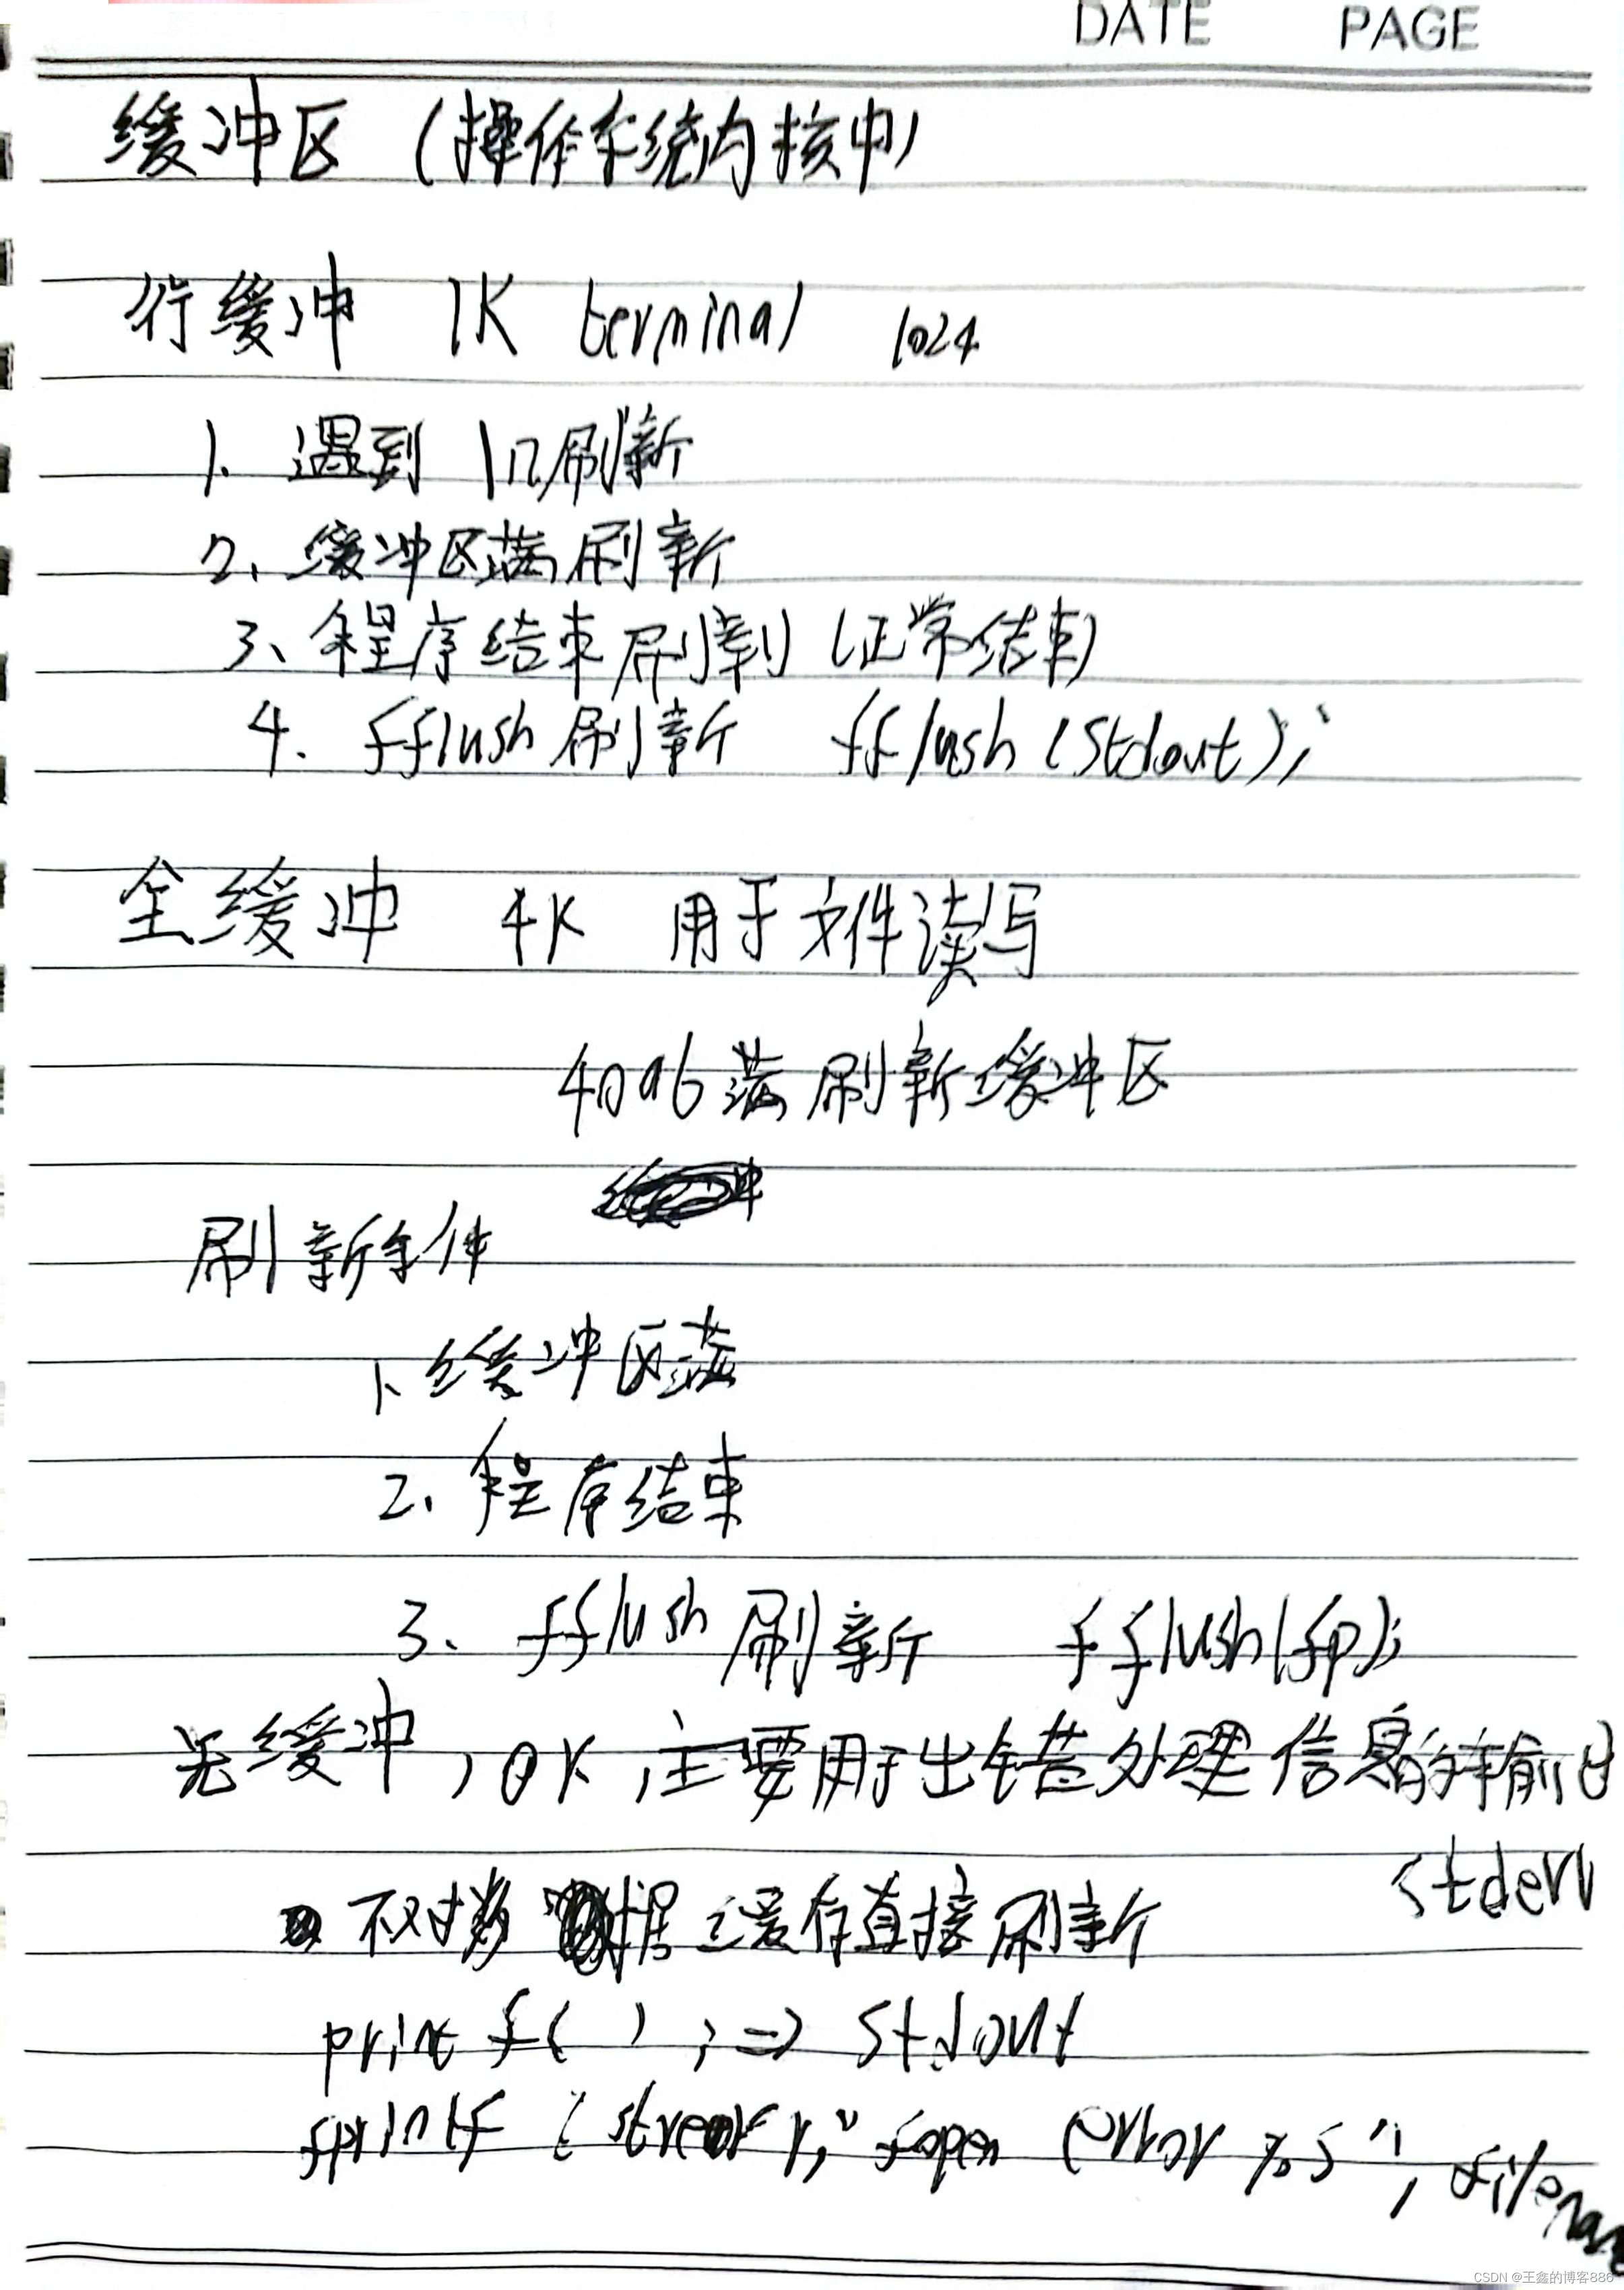 DATE PAGE
缓冲区 (操作系统内核中)
行缓冲 1K terminal 1024
1. 遇到 \n刷新
2. 缓冲区满刷新
3、程序结束刷新 (正常结束)
4. fflush刷新 fflush (stdout);
全缓冲 4K 用于文件读写
4096满刷新缓冲区
刷新条件
1、缓冲区满
2. 程序结束
3. fflush 刷新 fflush(fp);
无缓冲, 0K, 主要用于出错处理信息的输出
stderr
不对数据缓存直接刷新
printf( ); => stdout
fprintf ( "fopen error %s", filename
CSDN @王鑫的博客886